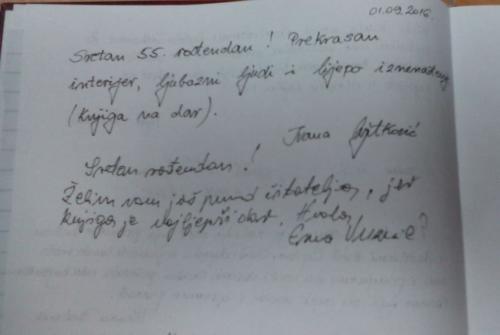 01.09.2016.
Sretan 55. rođendan! Prekrasan
interijer, ljubazni ljudi i lijepo iznenađenje
(knjiga na dar).
Ivana
Sretan rođendan!
Želim vam još puno čitatelja, jer
knjiga je najljepši dar. Hvala,
Ema